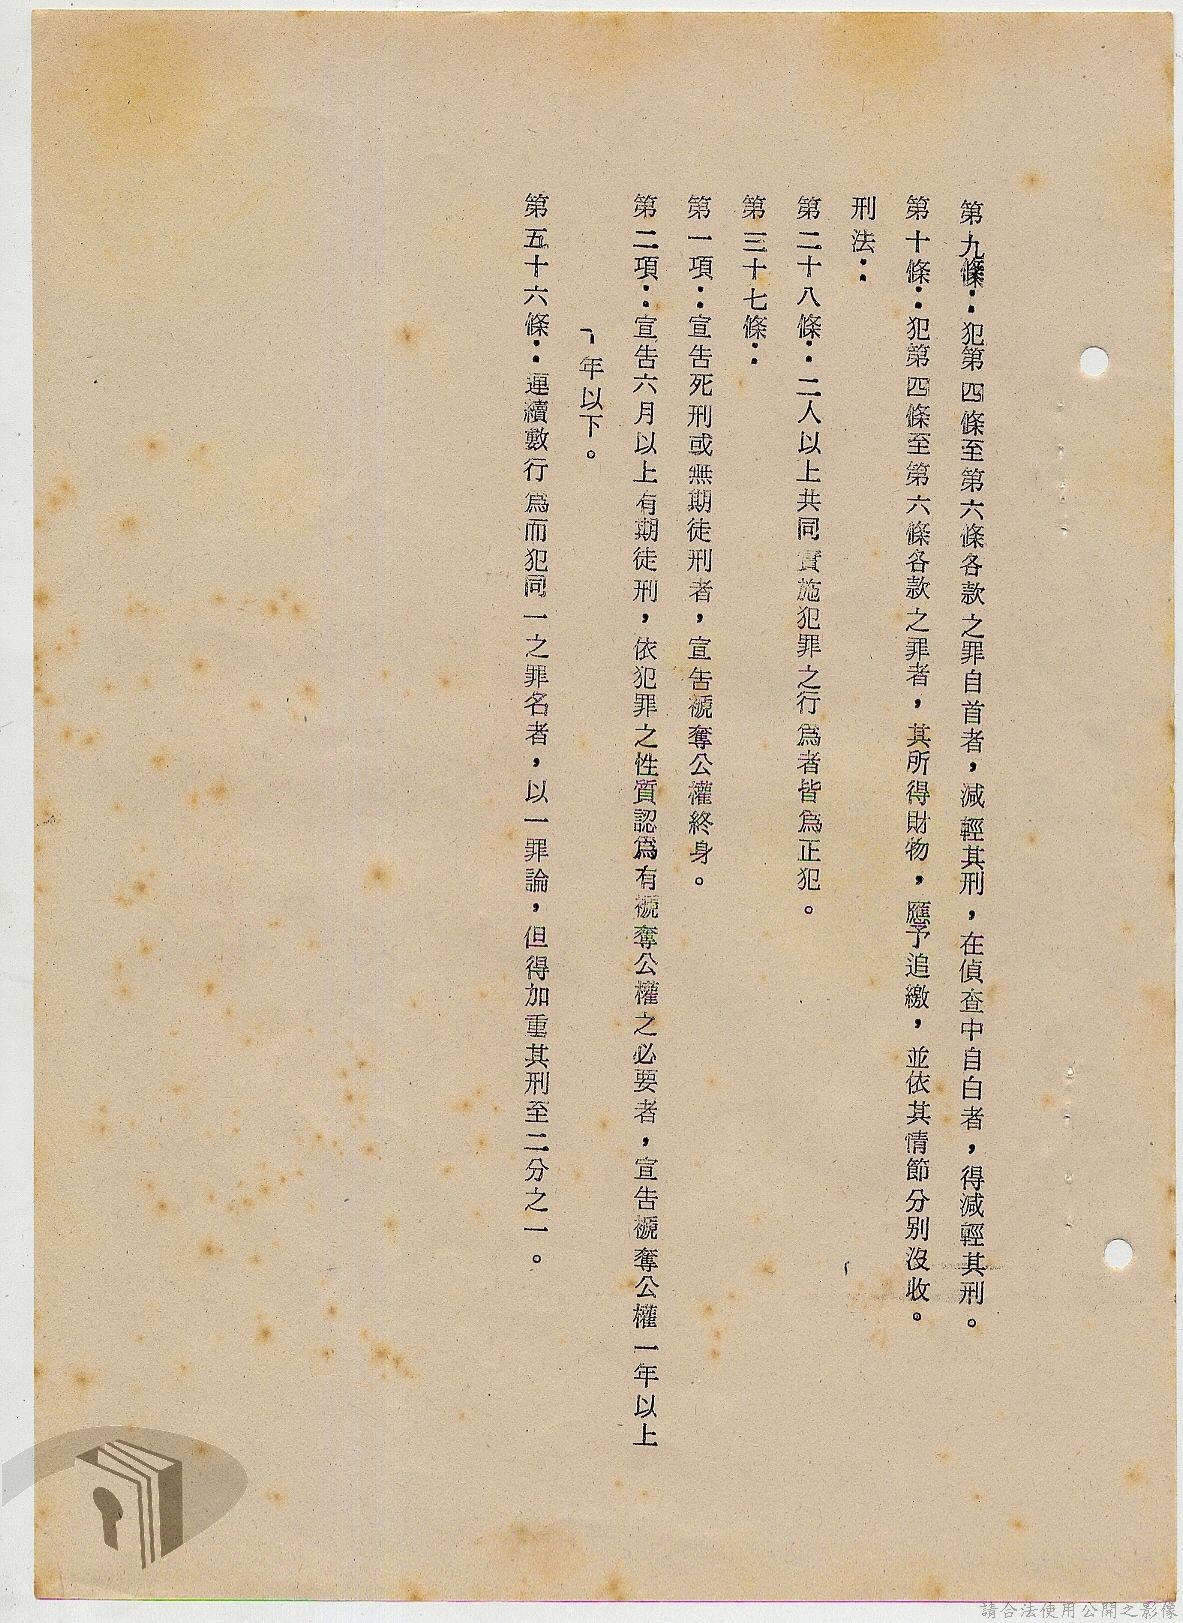 第九條：犯第四條至第六條各款之罪自首者，減輕其刑，在偵查中自白者，得減輕其刑。
第十條：犯第四條至第六條各款之罪者，其所得財物，應予追繳，並依其情節分別沒收。
刑法：
第二十八條：二人以上共同實施犯罪之行為者皆為正犯。
第三十七條：
第一項：宣告死刑或無期徒刑者，宣告褫奪公權終身。
第二項：宣告六月以上有期徒刑，依犯罪之性質認為有褫奪公權之必要者，宣告褫奪公權一年以上
年以下。
第五十六條：連續數行為而犯同一之罪名者，以一罪論，但得加重其刑至二分之一。
請合法使用公開之影像